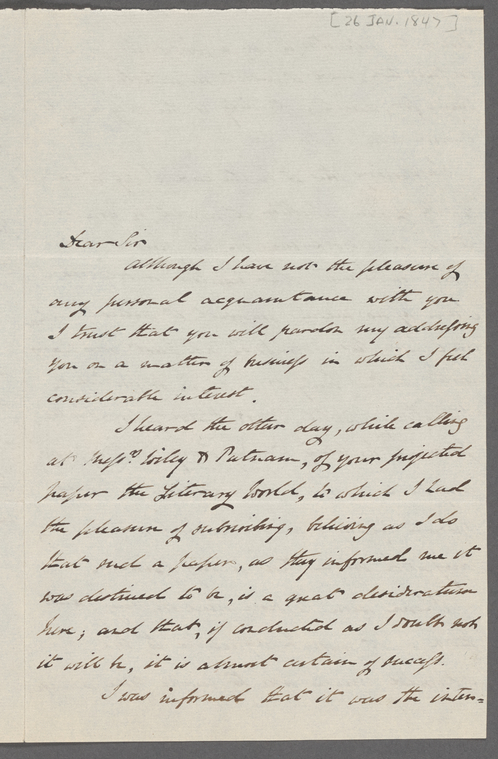 [26 JAN. 1847]
Dear Sir
Although I have not the pleasure of
any personal acquaintance with you
I trust that you will pardon my addressing
you on a matter of business in which I feel
considerable interest.
I heard the other day, while calling
at Messrs Wiley & Putnam, of your projected
paper the Literary World, to which I had
the pleasure of subscribing, believing as I do
that such a paper, as they informed me it
was destined to be, is a great desideratum
here; and that, if conducted as I doubt not
it will be, it is almost certain of success.
I was informed that it was the inten=